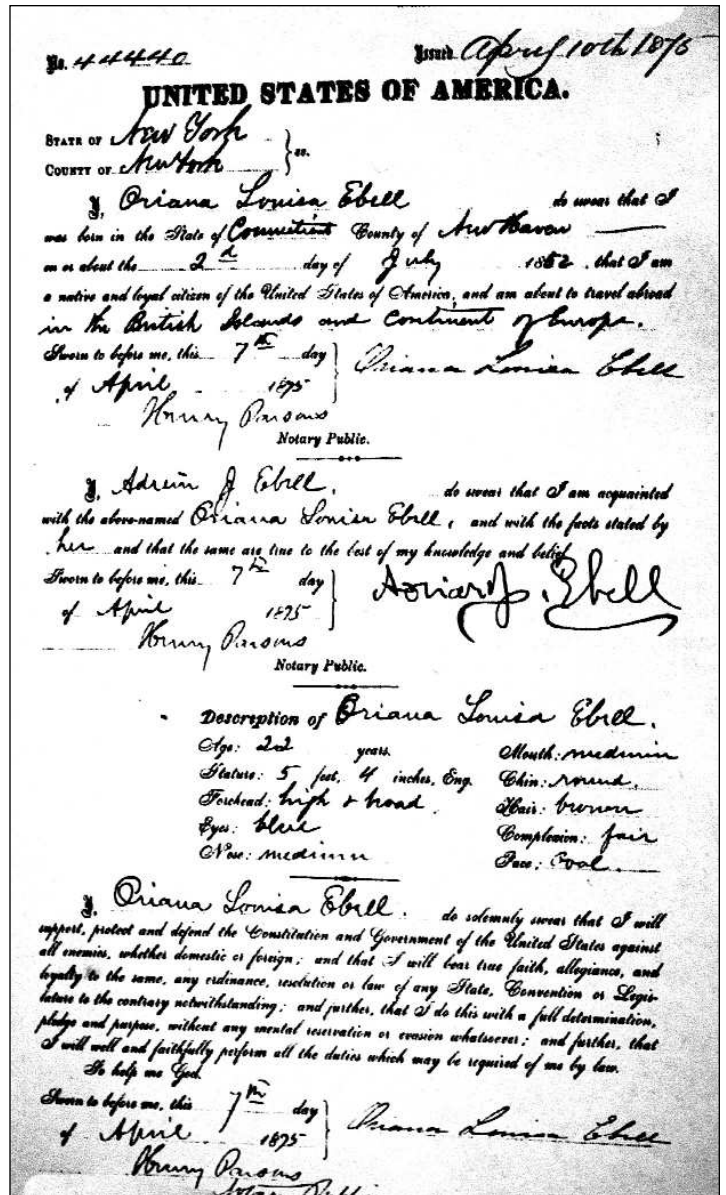 No. 44440 Issued April 10th 1875
UNITED STATES OF AMERICA.
STATE OF New York
COUNTY OF New York } ss.
I, Oriana Louisa Ebell do swear that I
was born in the State of Connecticut County of New Haven
on or about the 2d day of July 1852, that I am
a native and loyal citizen of the United States of America, and am about to travel abroad
in the British Islands and Continent of Europe.
Sworn to before me, this 7th day
of April 1875
Oriana Louisa Ebell
Henry Parsons
Notary Public.
I, Adrien J Ebell, do swear that I am acquainted
with the above-named Oriana Louisa Ebell, and with the facts stated by
her and that the same are true to the best of my knowledge and belief.
Sworn to before me, this 7th day
of April 1875
Adrian J. Ebell
Henry Parsons
Notary Public.
Description of Oriana Louisa Ebell.
Age: 22 years. Mouth: medium
Stature: 5 feet, 4 inches, Eng. Chin: round.
Forehead: high & broad. Hair: brown
Eyes: blue Complexion: fair
Nose: medium Face: Oval.
I, Oriana Louisa Ebell. do solemnly swear that I will
support, protect and defend the Constitution and Government of the United States against
all enemies, whether domestic or foreign; and that I will bear true faith, allegiance, and
loyalty to the same, any ordinance, resolution or law of any State, Convention or Legis-
lature to the contrary notwithstanding; and further, that I do this with a full determination,
pledge and purpose, without any mental reservation or evasion whatsoever; and further, that
I will well and faithfully perform all the duties which may be required of me by law.
So help me God.
Sworn to before me, this 7th day
of April 1875
Oriana Louisa Ebell
Henry Parsons
Notary Public